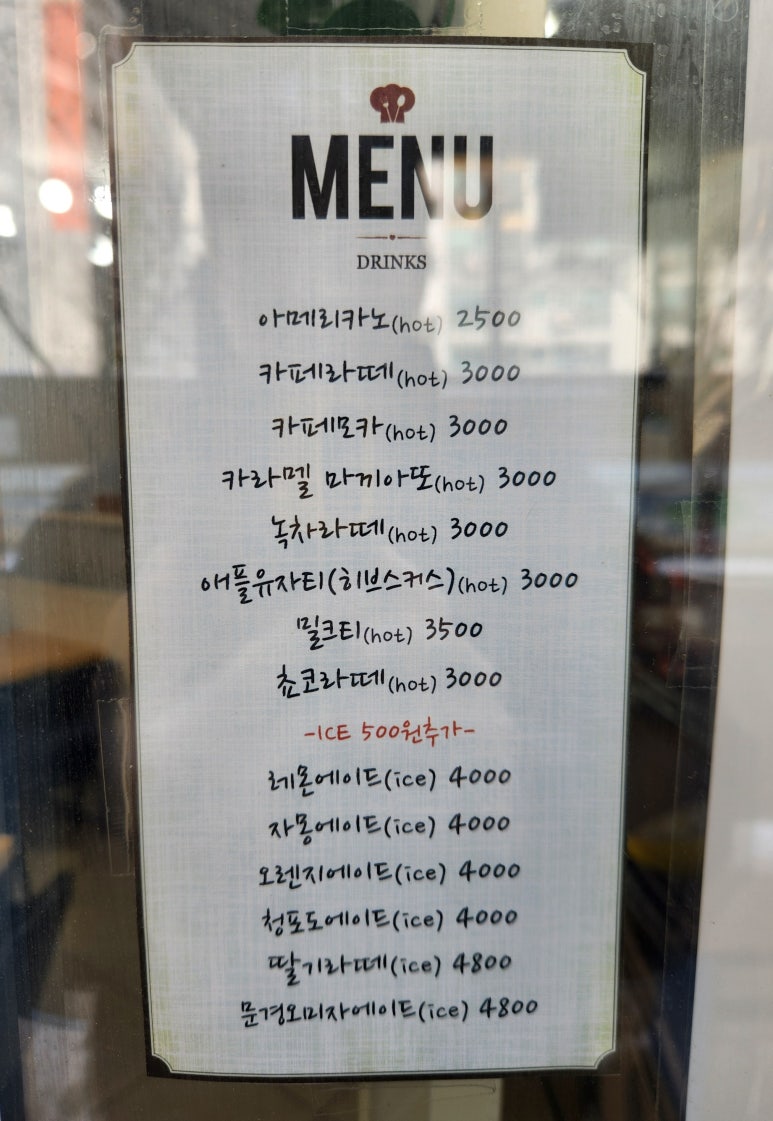 MENU
DRINKS
아메리카노(hot) 2500
카페라떼(hot) 3000
카페모카(hot) 3000
카라멜 마끼아또(hot) 3000
녹차라떼(hot) 3000
애플유자티(히브스커스)(hot) 3000
밀크티(hot) 3500
쵸코라떼(hot) 3000
-ICE 500원추가-
레몬에이트(ice) 4000
자몽에이트(ice) 4000
오렌지에이트(ice) 4000
청포도에이트(ice) 4000
딸기라떼(ice) 4800
문경오미자에이트(ice) 4800